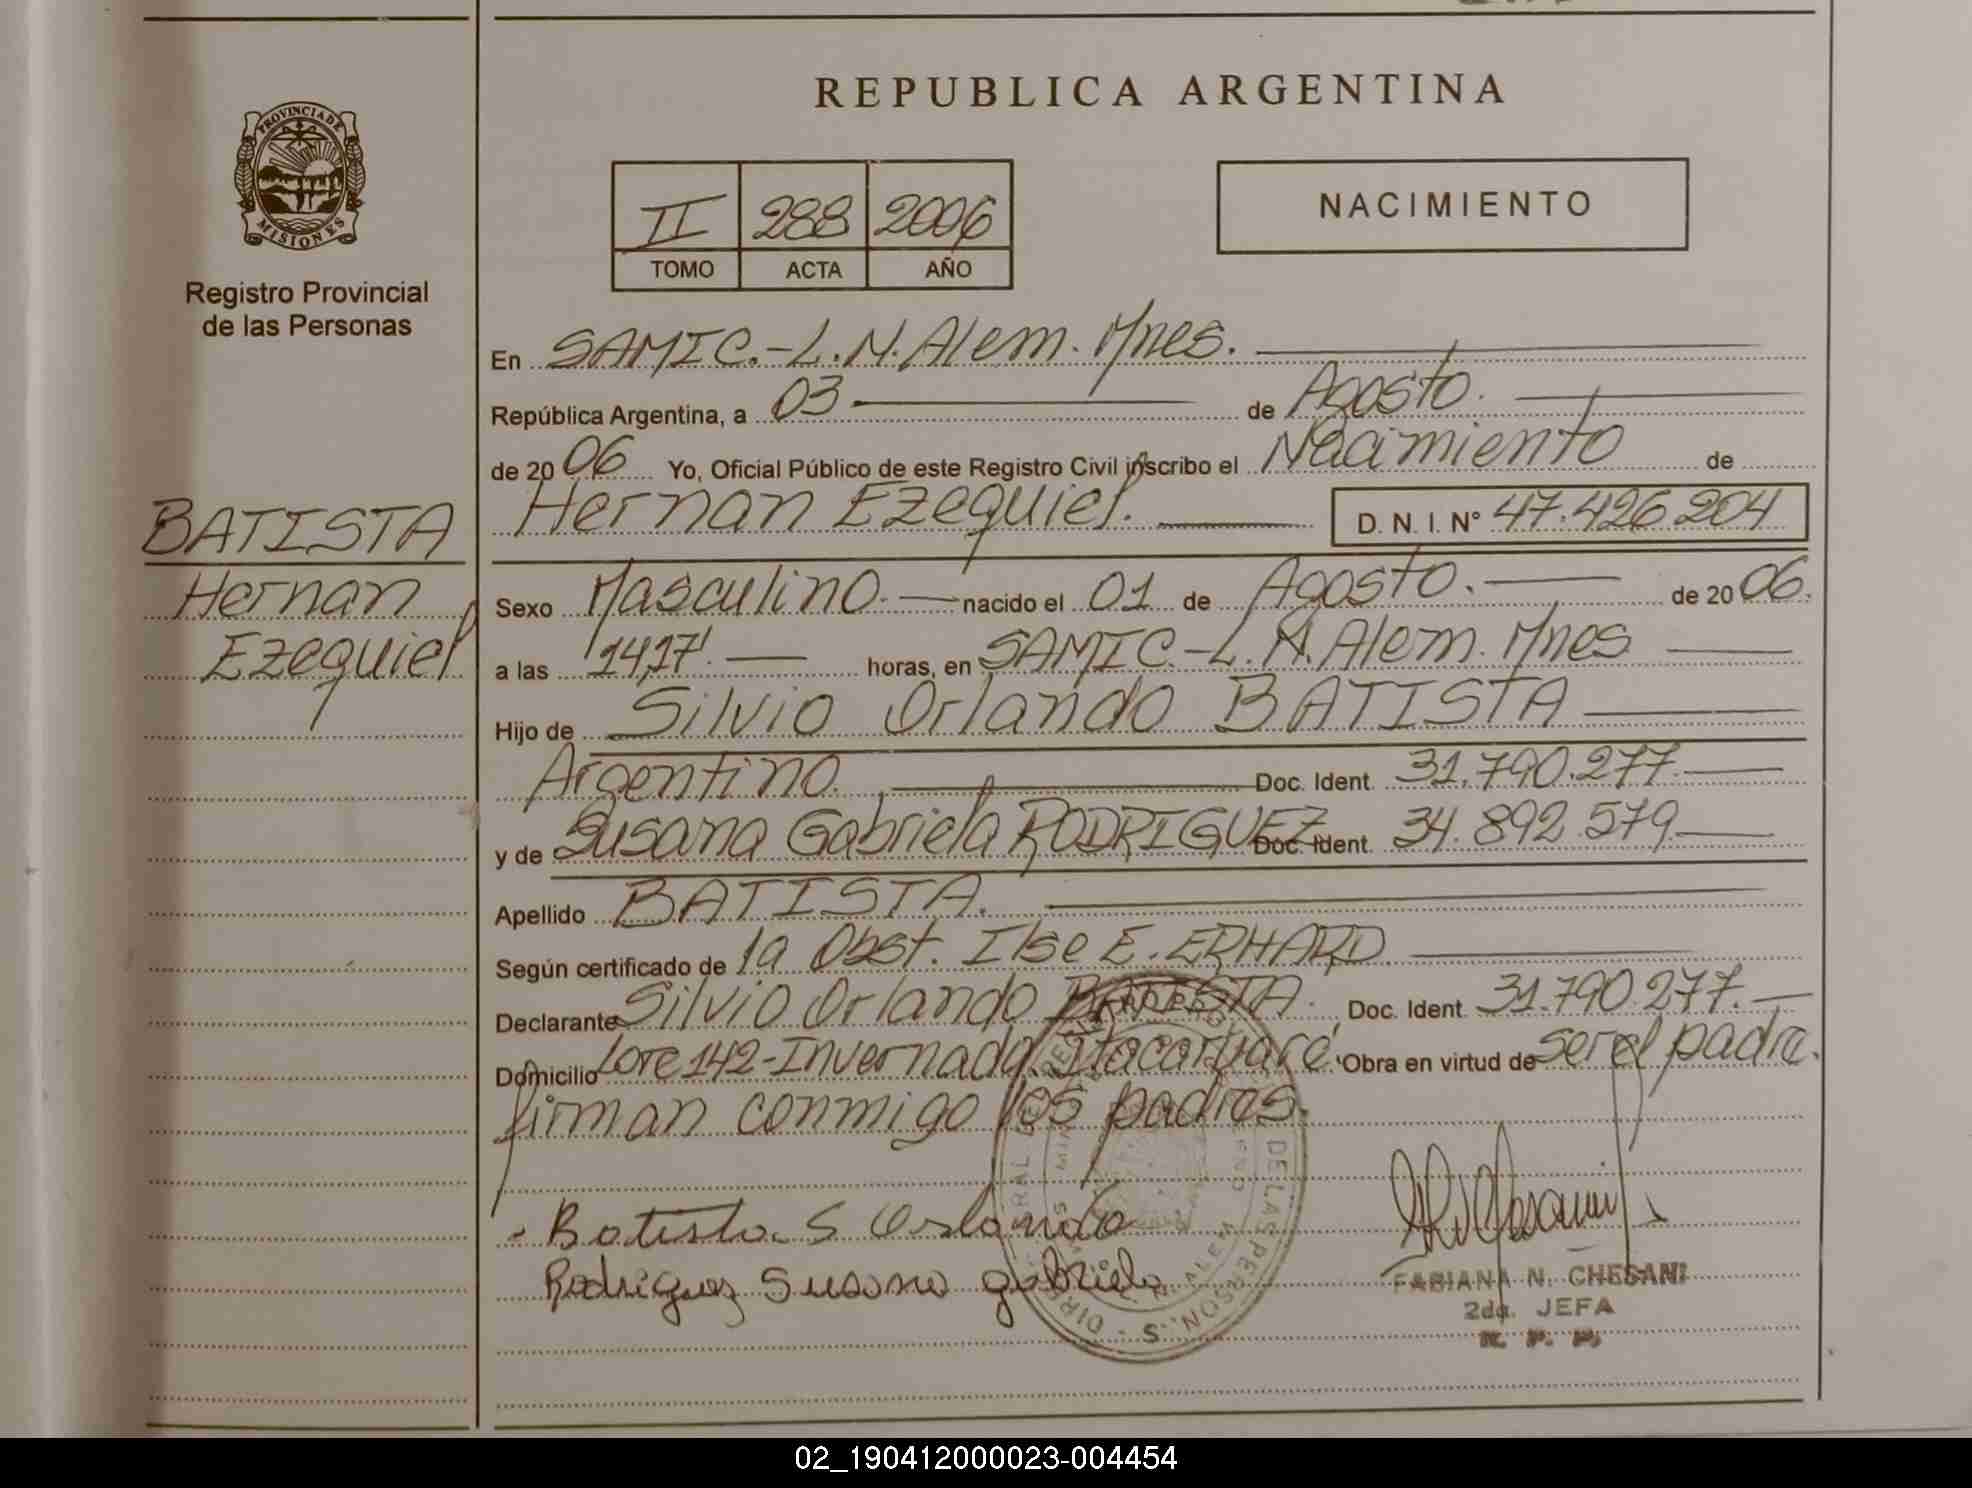 REPUBLICA ARGENTINA
PROVINCIA DE
MISIONES
Registro Provincial
de las Personas
II 288 2006
TOMO ACTA AÑO
NACIMIENTO
En SAMIC.-L.N.Alem. Mnes.
República Argentina, a 03 de Agosto.
de 2006 Yo, Oficial Público de este Registro Civil inscribo el Nacimiento de
BATISTA
Hernan
Ezequiel
Hernan Ezequiel. D. N. I. N° 47.426.204
Sexo Masculino. nacido el 01 de Agosto. de 2006.
a las 14,17'. horas, en SAMIC.-L.N.Alem. Mnes
Hijo de Silvio Orlando BATISTA
Argentino. Doc. Ident. 31.790.277.
y de Susana Gabriela RODRIGUEZ Doc. Ident. 34.892.579
Apellido BATISTA.
Según certificado de la Obst. Ilse E. ERHARD
Declarante Silvio Orlando BATISTA. Doc. Ident. 31.790.277.
Domicilio Lote 142-Invernada Itacaruaré. Obra en virtud de ser el padre.
firman conmigo los padres.
Batista S Orlando
Rodriguez Susana gabriela
FABIANA N. CHESANI
2da. JEFA
R. P. P.
02_190412000023-004454